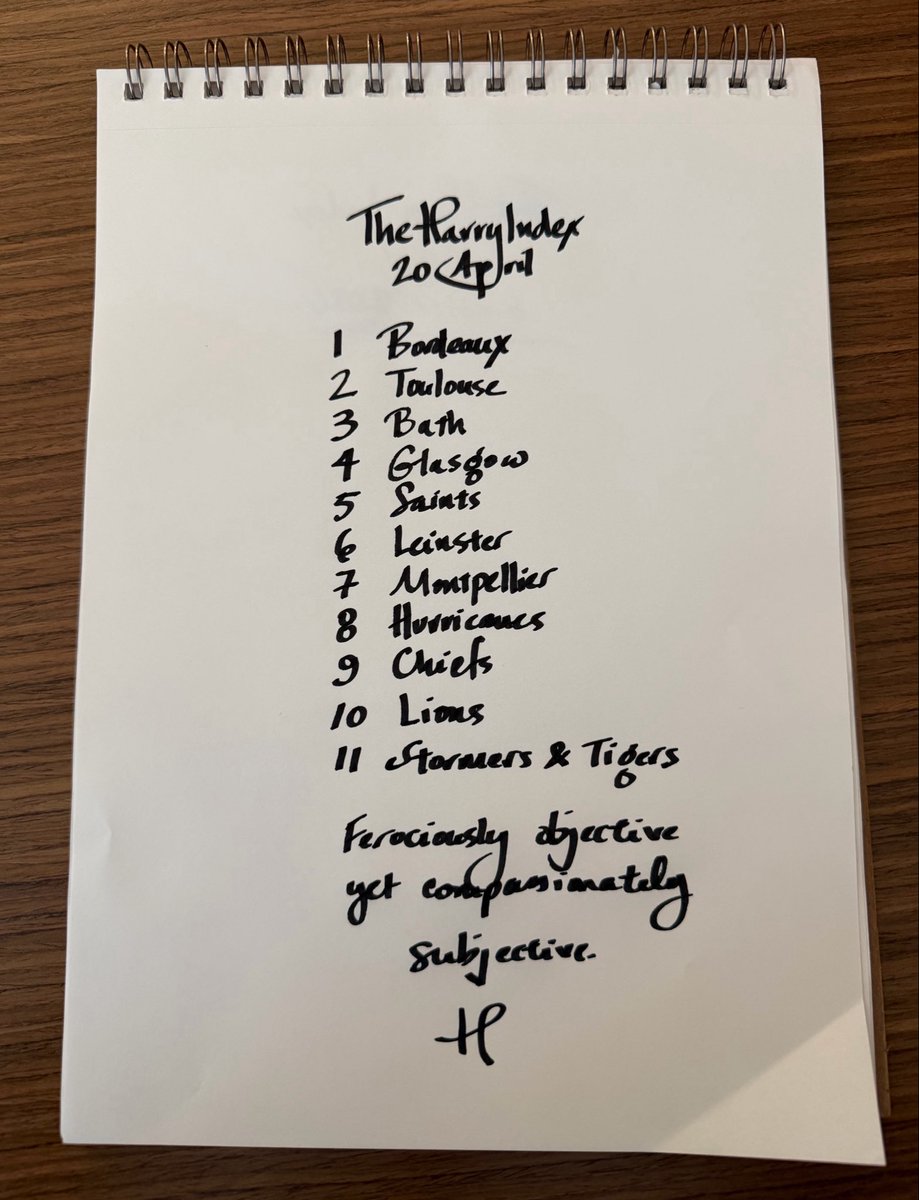 The Harry Index
20 April
1 Bordeaux
2 Toulouse
3 Bath
4 Glasgow
5 Saints
6 Leinster
7 Montpellier
8 Hurricanes
9 Chiefs
10 Lions
11 Stormers & Tigers
Ferociously objective
yet compassionately
subjective.
H